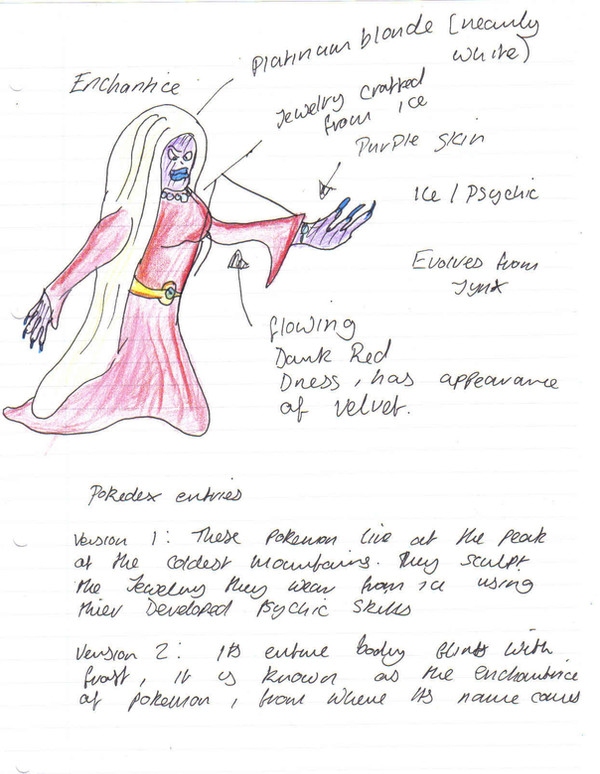 Enchantice
Platinum blonde (nearly
white)
Jewelry crafted
from ice
Purple skin
Ice / Psychic
Evolves from
Jynx
flowing
Dark Red
Dress, has appearance
of velvet.
Pokedex entries
Version 1: These Pokemon live at the peak
of the coldest mountains. They sculpt
the Jewelry they wear from ice using
thier Developed Psychic Skills
Version 2: Its entire body glints with
frost, it is known as the enchantrice
of pokemon, from where its name comes